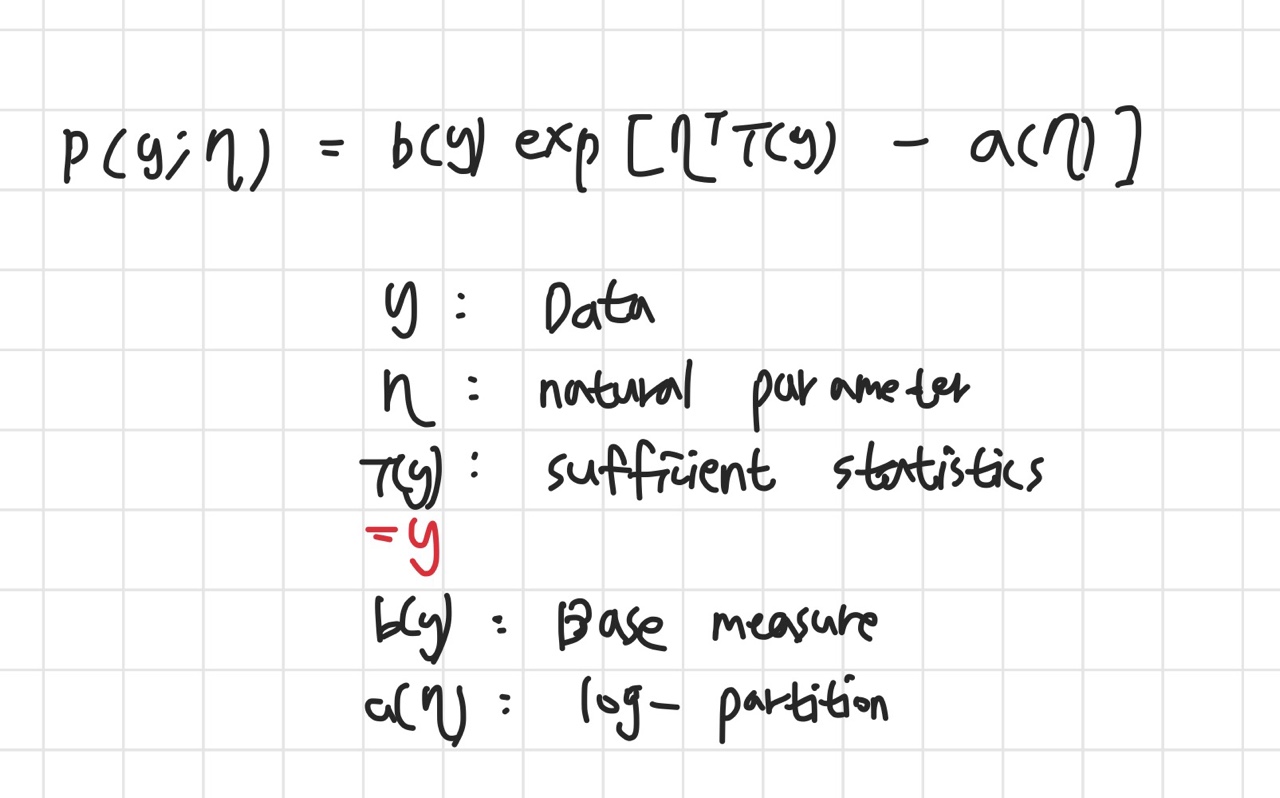 p(y;η) = b(y) exp[ηᵀT(y) - a(η)]
y : Data
η : natural parameter
T(y) : sufficient statistics
=y
b(y) : Base measure
a(η) : log-partition